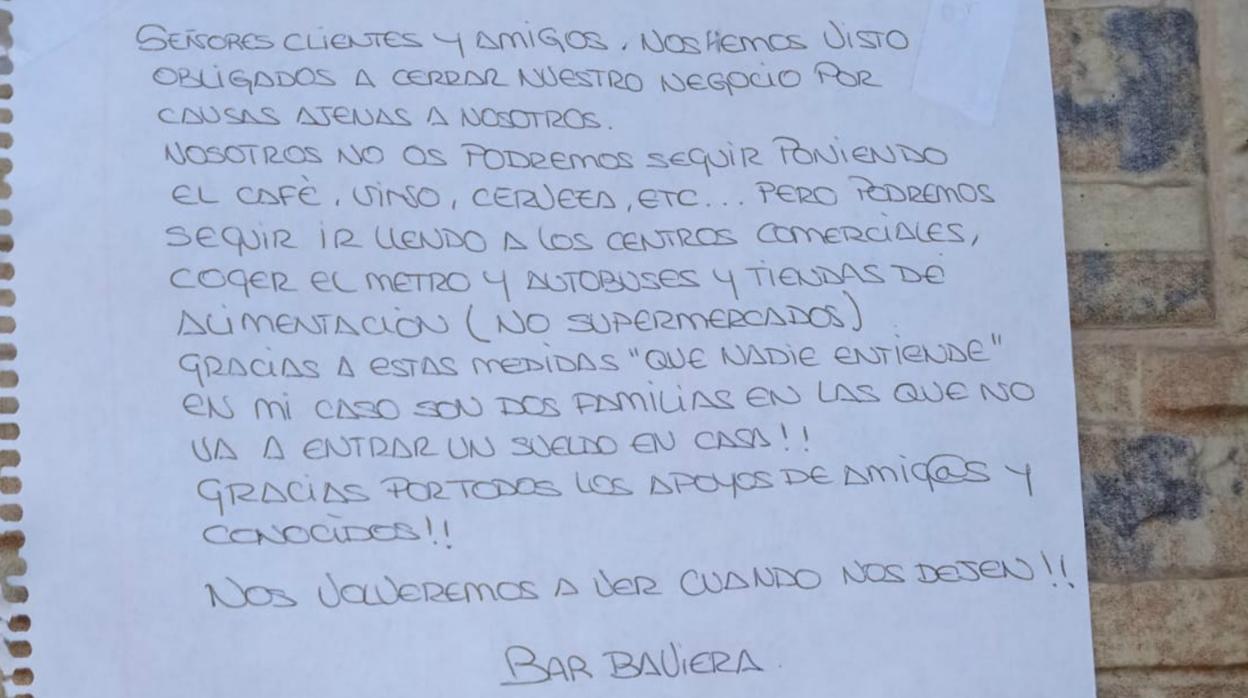 SEÑORES CLIENTES Y AMIGOS. NOS HEMOS VISTO
OBLIGADOS A CERRAR NUESTRO NEGOCIO POR
CAUSAS AJENAS A NOSOTROS.
NOSOTROS NO OS PODREMOS SEGUIR PONIENDO
EL CAFÈ, VINSO, CERVEZA, ETC... PERO PODREMOS
SEGUIR IR LLENDO A LOS CENTROS COMERCIALES,
COGER EL METRO Y AUTOBUSES Y TIENDAS DE
ALIMENTACIÓN (NO SUPERMERCADOS)
GRACIAS A ESTAS MEDIDAS "QUE NADIE ENTIENDE"
EN MI CASO SON DOS FAMILIAS EN LAS QUE NO
VA A ENTRAR UN SUELDO EN CASA!!
GRACIAS POR TODOS LOS APOYOS DE AMIG@S Y
CONOCIDOS!!
NOS VOLVEREMOS A VER CUANDO NOS DEJEN!!
BAR BAVIERA.